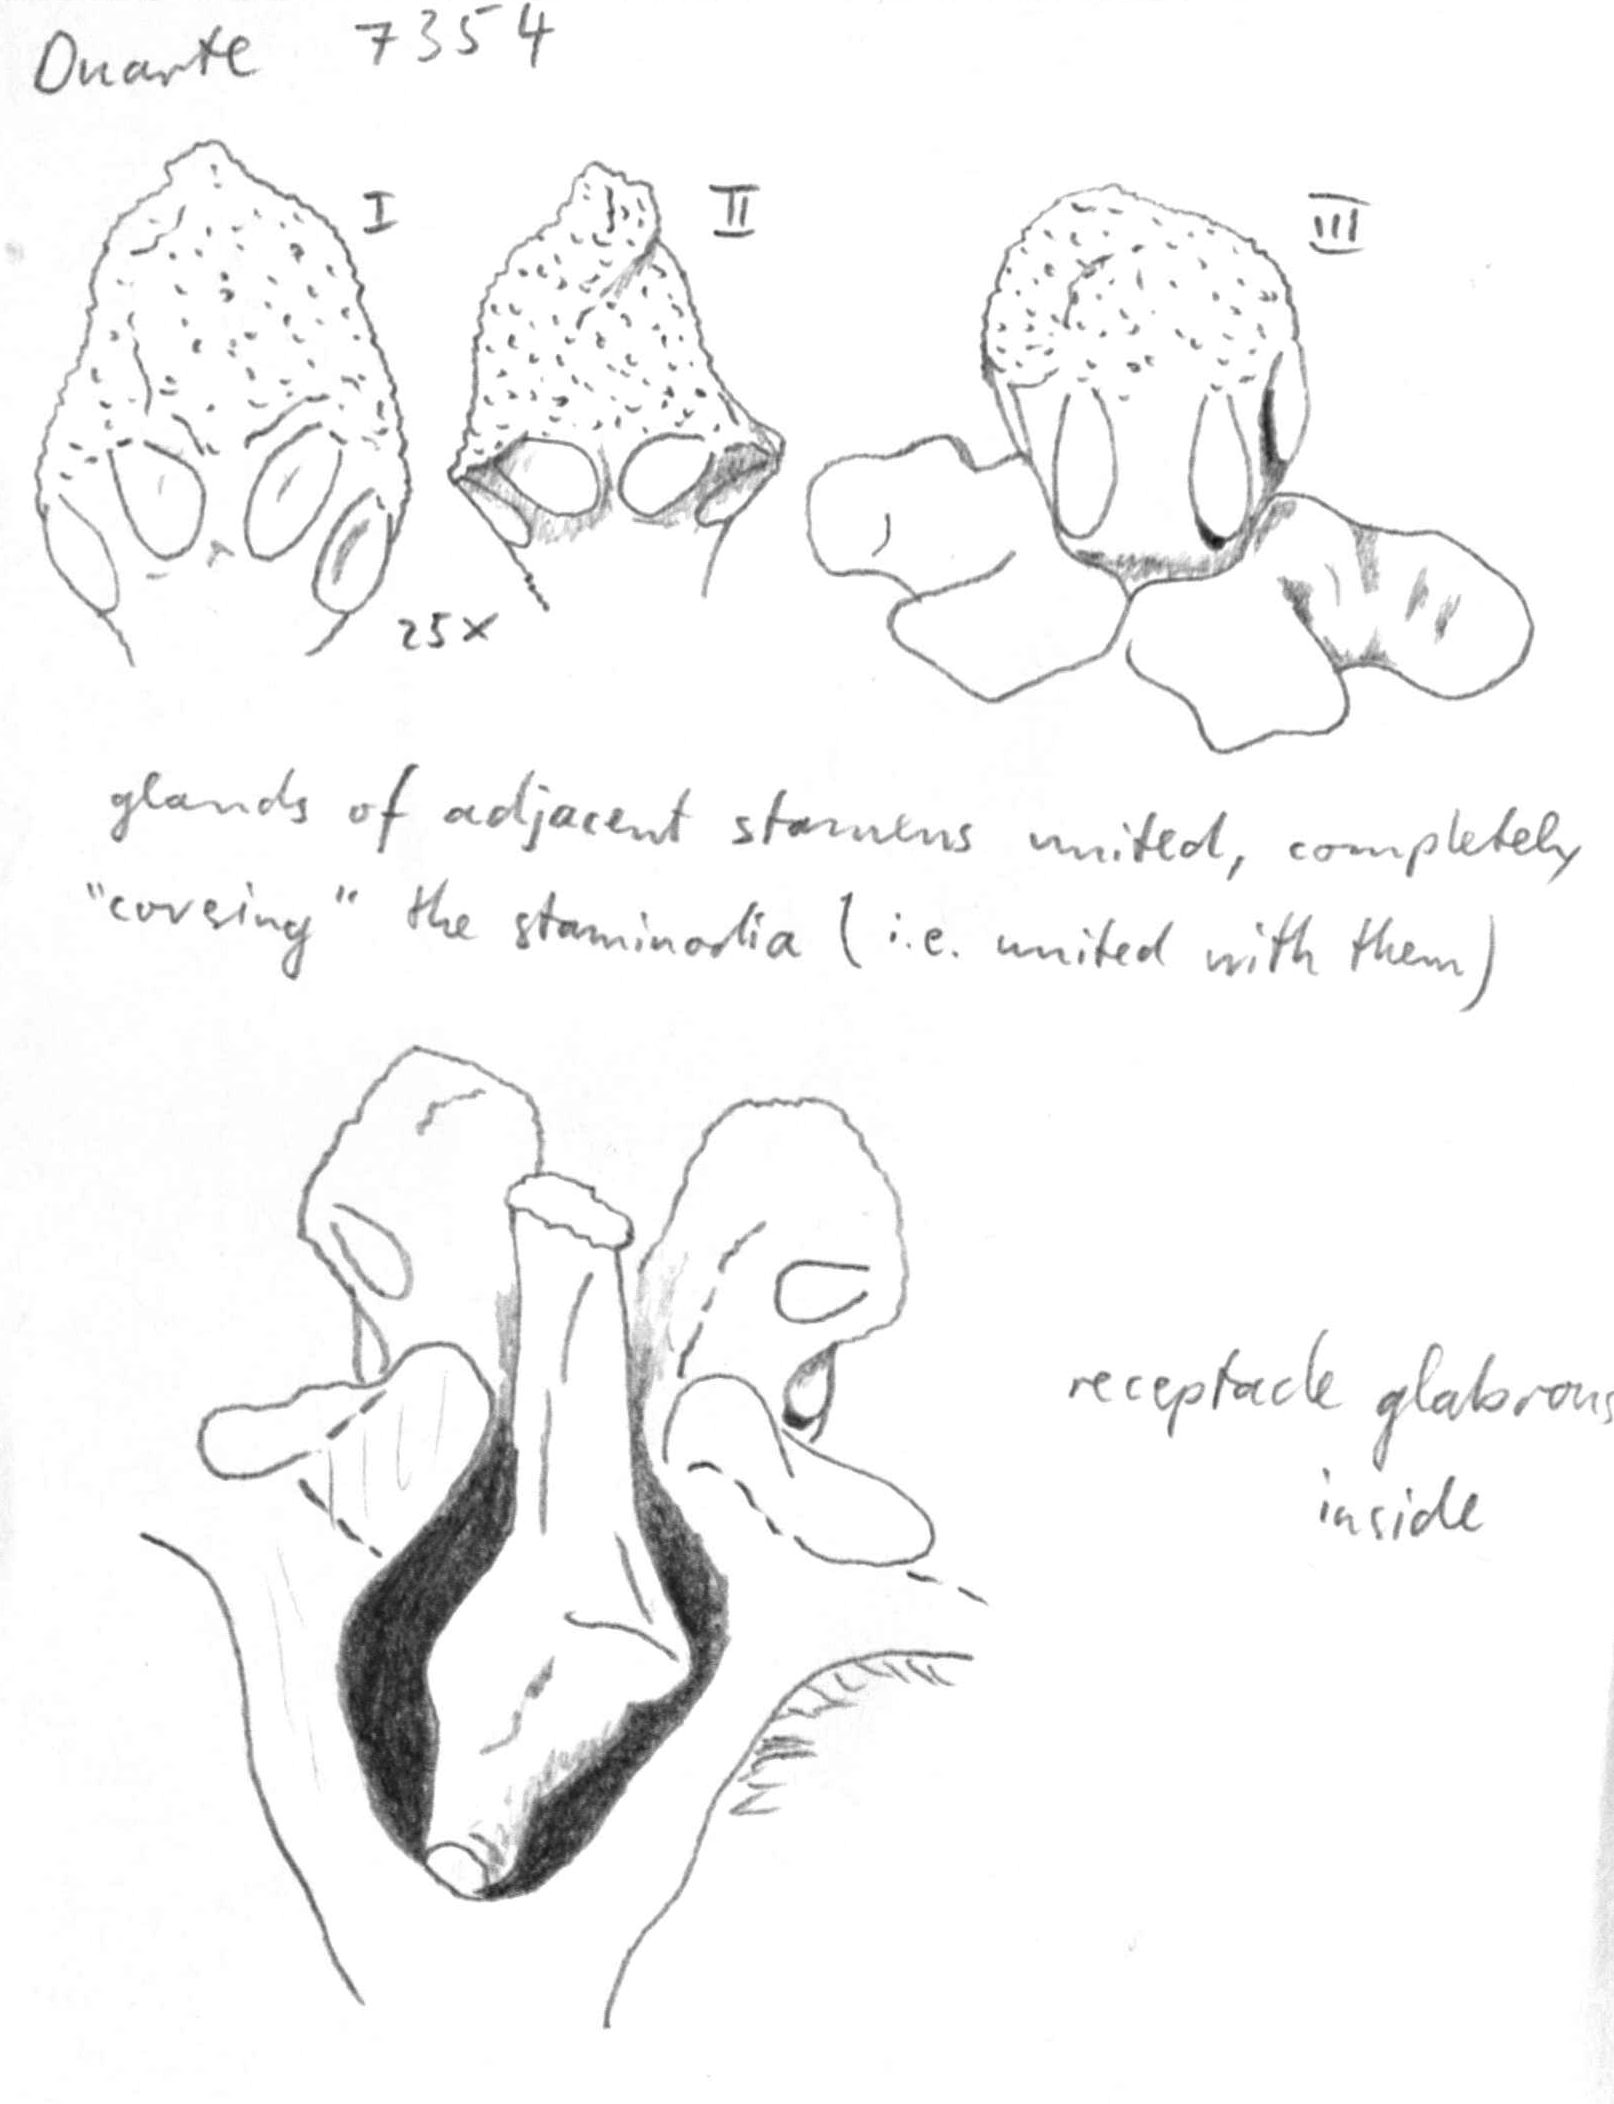 Duarte 7354
I
II
III
25x
glands of adjacent stamens united, completely
"covering" the staminodia (i.e. united with them)
receptacle glabrous
inside